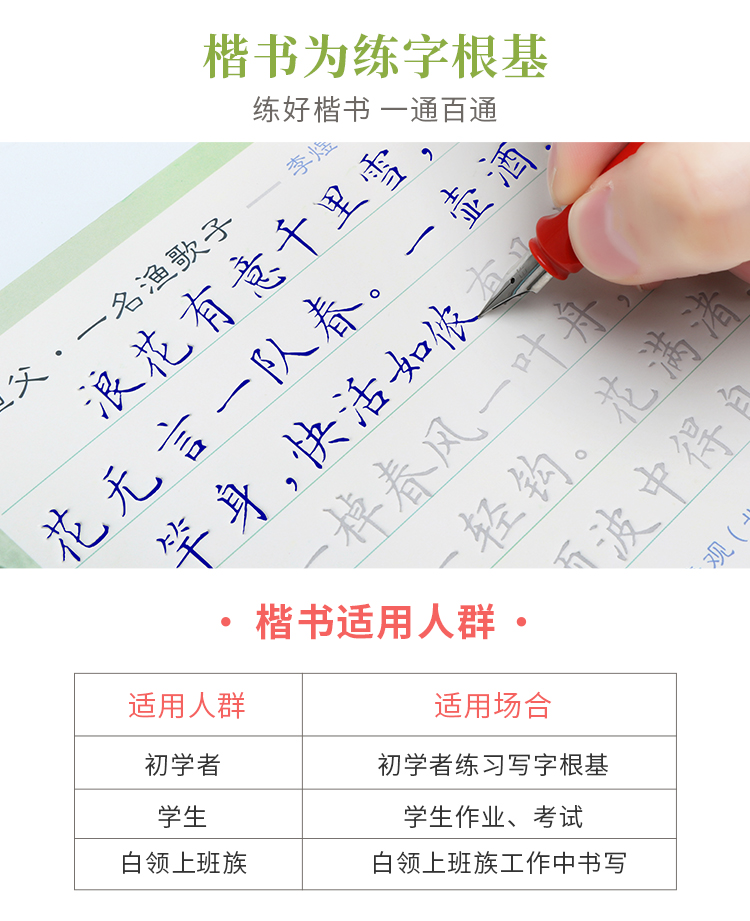 楷书为练字根基
练好楷书 一通百通
父·一名渔歌子 —— 李煜
浪花有意千里雪，
花无言一队春。一壶酒.
竿身，快活如侬有
一棹春风一叶舟，
一轻钩。花满渚
波中得自
观
• 楷书适用人群 •
适用人群 适用场合
初学者 初学者练习写字根基
学生 学生作业、考试
白领上班族 白领上班族工作中书写